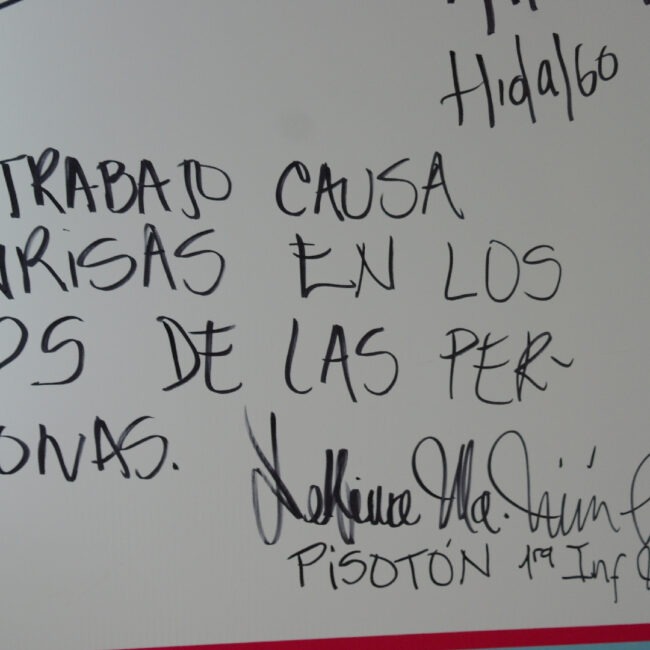 Hidalgo
TRABAJO CAUSA
RISAS EN LOS
OS DE LAS PER-
SONAS.
PISOTÓN 1ra Inf